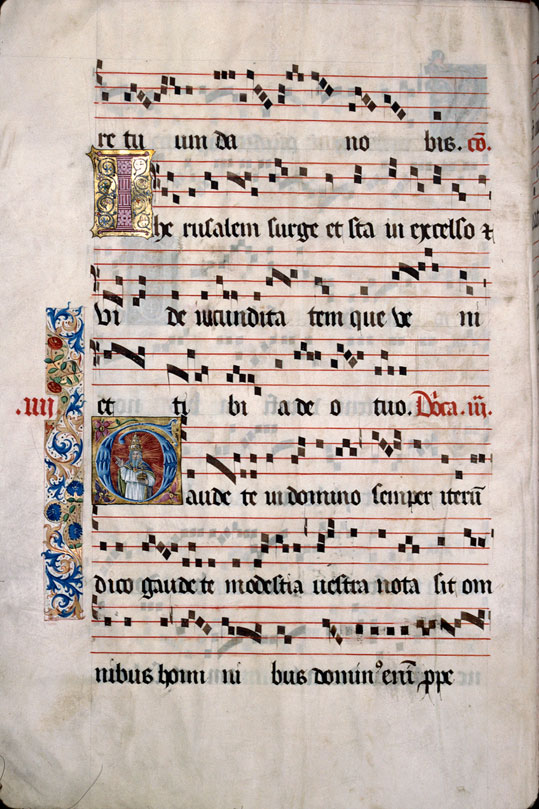 re tu um da no bis. cō.
Ihe rusalem surge et sta in excelso ⁊
vi de iucundita tem que ve ni
.iiij. et ti bi a de o tuo. Dn̄ca. iij.
Gaude te in domino semper iterū
dico gaude te modestia uestra nota sit om
nibus homi ni bus domin᷒ enī ꝓpe